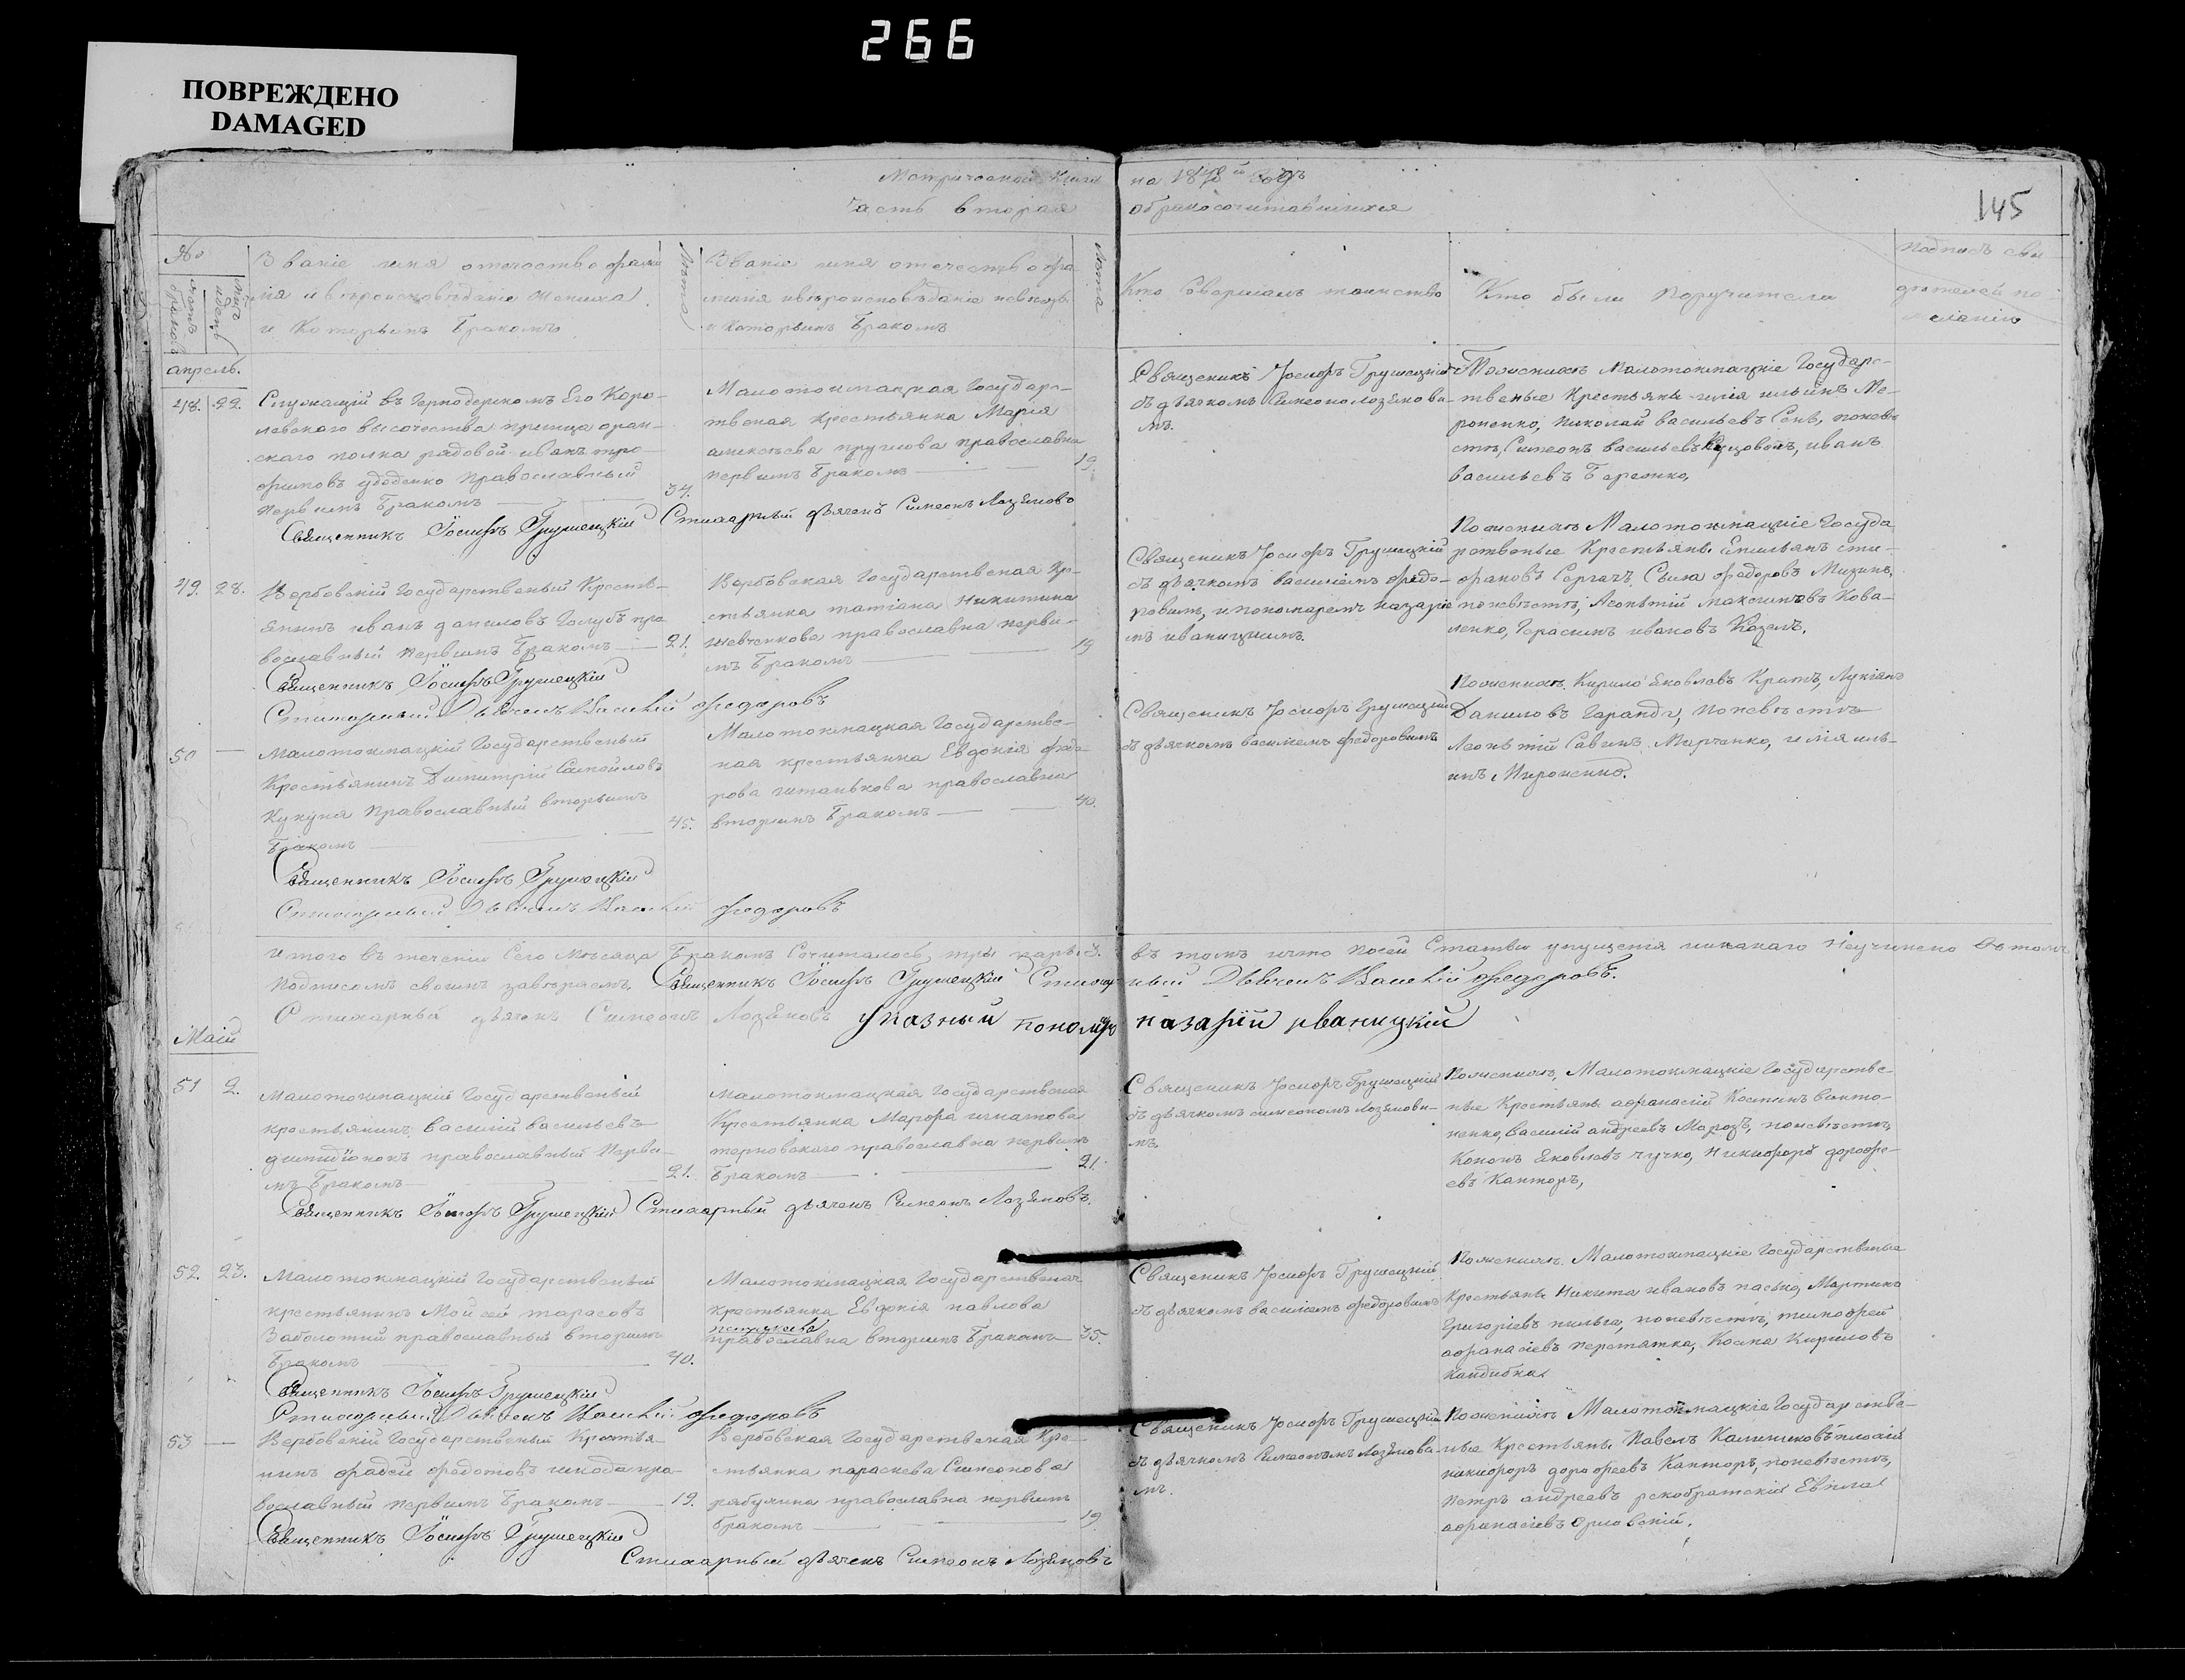 266
ПОВРЕЖДЕНО
DAMAGED
145
Метрической Книги на 1878й годъ
Часть вторая о бракосочитавшихся
№
счетъ браковъ
Званіе имя отечество фами
лія и вѣроисповѣданіе жениха
и Которымъ Бракомъ
Лѣта
Званіе имя отечество фа
милія и вѣроисповѣданіе невѣсты
и Которымъ Бракомъ
Лѣта
Кто Совершалъ таинство
Кто были Поручители
Подпись сви
дѣтелей по
желанію
апрель.
48. 22. Служащій въ
левского высочества принца оран-
ского полка рядовой иванъ тро-
фимовъ удоденко Православный
Первымъ Бракомъ 34.
Малотокмацкая Государс-
твеная Крестьянка Марія
алексѣева православна
Первымъ Бракомъ 19.
Священикъ Іосифъ Грушецкій
съ дьячкомъ Симеономъ Лозѣнови-
мъ.
Пожениху Малотокмацкіе Государс-
твеные Крестьяне илія ильинъ Ми-
роненко, николай васильевъ Сенъ, поневѣ
стѣ, Симеонъ васильевъ иванъ
васильевъ
Священникъ Іосифъ Грушецкій Стихарный дьячекъ Симеонъ Лозѣновъ
49. 28. Вербовскій Государственый Кресть-
янинъ иванъ даниловъ Голубъ пра
вославный Первымъ Бракомъ 21.
Вербовская Государственая Кре-
стьянка татіана Никитина
шевченкова православна первы-
мъ Бракомъ 19
Священикъ Іосифъ Грушецкій
съ дьячкомъ василіемъ федо-
ровимъ, и пономаремъ назаріе
мъ иваницкимъ.
Пожениху Малотокмацкіе Госуда
рственые Крестьяне Емильянъ сти-
фановъ Сергачъ, Сыла федоровъ Мизинъ,
поневѣстѣ, Леонтій максимовъ Кова-
ленко, Герасимъ ивановъ Козелъ.
Священникъ Іосифъ Грушецкій
Стихарный Дьячекъ Василій федоровъ
50 — Малотокмацкій Государственый
Крестьянинъ Димитрій Самойловъ
Кукуня Православный вторымъ
Бракомъ 45.
Малотокмацкая Государстве-
ная крестьянка Евдокія федо-
рова православна
вторымъ Бракомъ 40.
Священикъ Іосифъ Грушецкій
съ дьячкомъ василіемъ федоровимъ
Пожениху Кирило Яковлевъ Кратъ, Лукіянъ
Даниловъ поневѣстѣ
Леонтій Савинъ Марченко, илія иль-
инъ Мироненко.
Священникъ Іосифъ Грушецкій
Стихарный Дьячекъ Василій федоровъ
итого въ теченіи Сего мѣсяца Бракомъ Сочиталось три пары 3. въ томъ что посей Статьи упущенія никакаго неучинено въ томъ
Подписомъ своимъ завѣряемъ. Священникъ Іосифъ Грушецкій Стихарный Дьячекъ Василій федоровъ.
Стихарный дьячекъ Симеонъ Лозѣновъ указный пономарь назарій иваницкій
Маій
51 2. Малотокмацкій Государственый
крестьянинъ василій васильевъ
православный Первы-
мъ Бракомъ 21.
Малотокмацкая Государственая
Крестьянка Марфа игнатова
терновского православна первымъ
Бракомъ 21.
Священикъ Іосифъ Грушецкій
съ дьячкомъ симеономъ лозѣнови-
мъ.
Пожениху, Малотокмацкіе Государстве-
ные Крестьяне афанасій Костинъ
василій андреевъ Морозъ, поневѣстѣ,
Кононъ Яковлевъ чучко, Никифоръ дорофе-
евъ Канторъ,
Священникъ Іосифъ Грушецкій Стихарный дьячекъ Симеонъ Лозѣновъ.
52. 23. Малотокмацкій Государственый
крестьянинъ Мойсей тарасовъ
Заболотній православный вторымъ
Бракомъ 40.
Малотокмацкая Государственая
крестьянка Евдокія павлова
православна вторымъ Бракомъ 35.
Священикъ Іосифъ Грушецкій
съ дьячкомъ василіемъ федоровимъ
Пожениху Малотокмацкіе Государственые
Крестьяне Никита ивановъ Мартинъ
Григоріевъ поневѣстѣ, тимофей
афанасіевъ Перетятка, Косма Кириловъ
Кандибка
Священникъ Іосифъ Грушецкій
Стихарный Дьячекъ Василій федоровъ
53 — Вербовскій Государственый Крестья-
нинъ фадей федотовъ шкода пра-
вославный первымъ Бракомъ 19.
Вербовская Государственая Кре-
стьянка параскева Симеонова
рябухина православна первымъ
Бракомъ 19
Священикъ Іосифъ Грушецкій
съ дьячкомъ Симеономъ Лозѣнови-
мъ.
Пожениху Малотокмацкіе Государстве-
ные Крестьяне Павелъ
никифоръ дорофеевъ Канторъ, поневѣстѣ,
Петръ андреевъ
афанасіевъ орловскій.
Священникъ Іосифъ Грушецкій
Стихарный дьячекъ Симеонъ Лозѣновъ